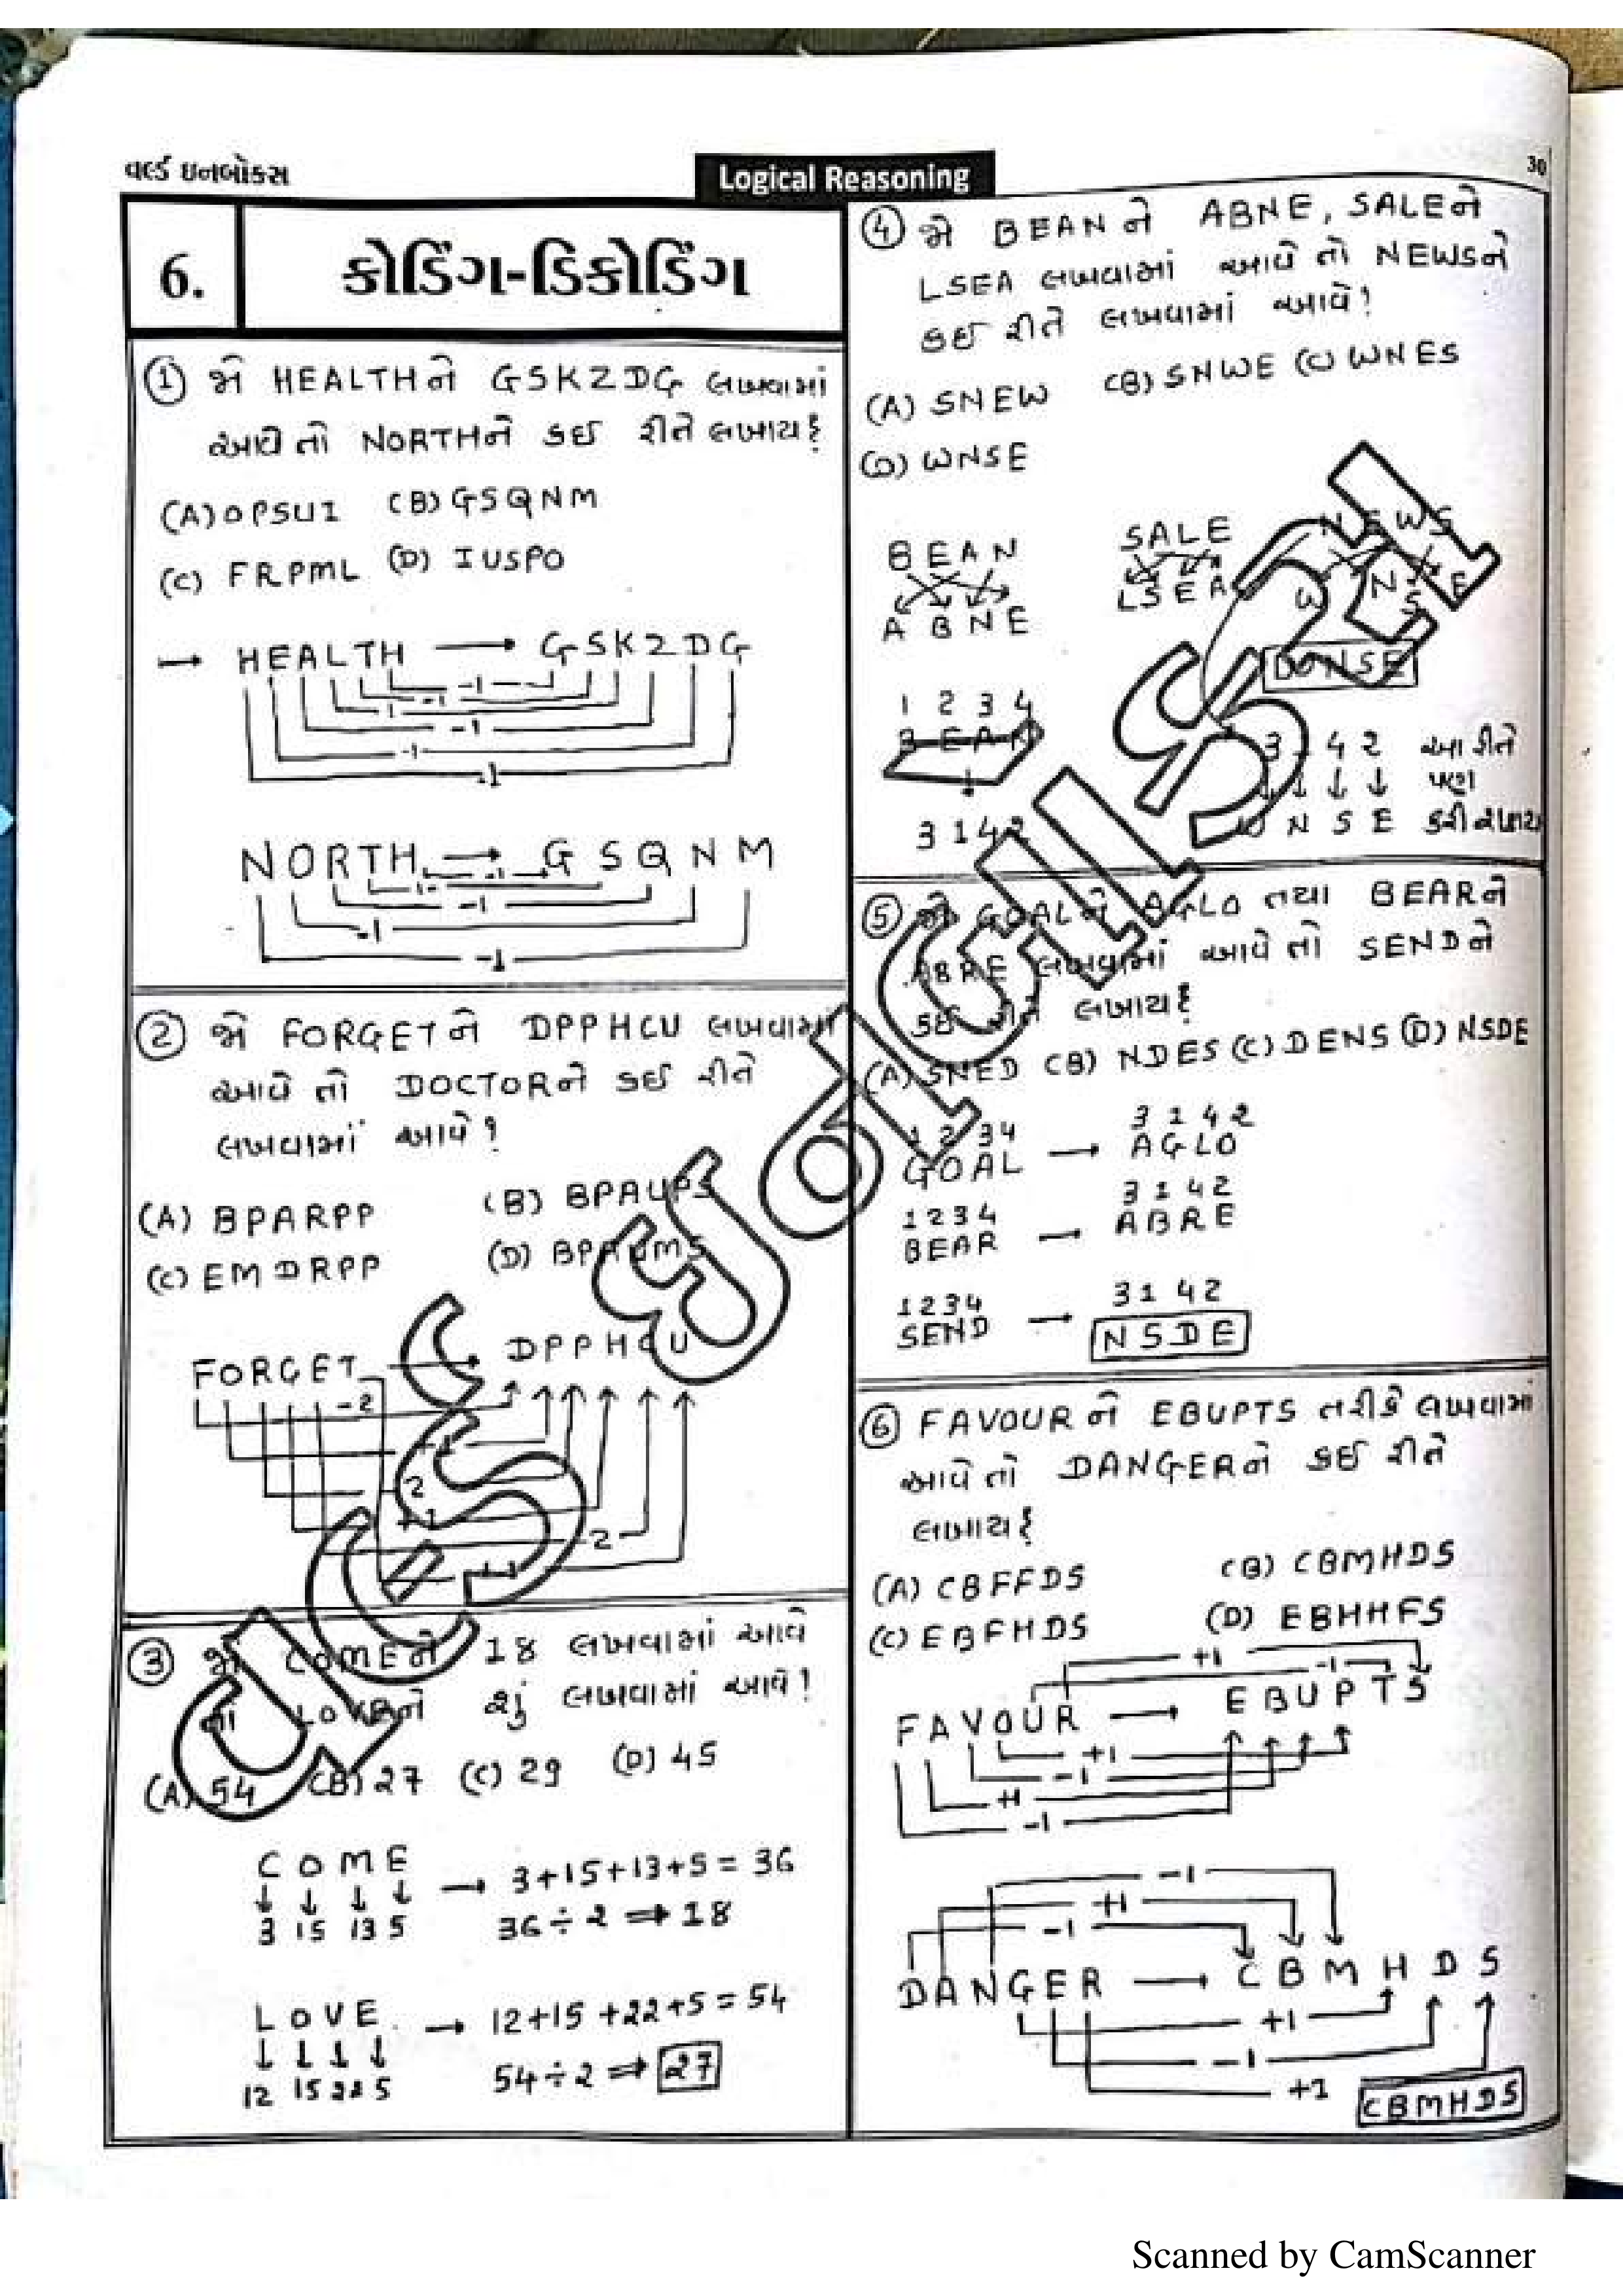 વર્લ્ડ ઇનબોક્સ
Logical Reasoning
30
6.
કોડિંગ-ડિકોડિંગ
① જો HEALTHને GSKZDG લખવામાં
આવે તો NORTHને કઈ રીતે લખાય?
(A) OPSUI (B) GSQNM
(C) FRPML (D) IUSPO
→ HEALTH → GSKZDG
-1
-1
-1
-1
-1
-1
NORTH → GSQNM
-1
-1
-1
-1
-1
② જો FORGETને DPPHCU લખવામાં
આવે તો DOCTORને કઈ રીતે
લખવામાં આવે?
(A) BPARPP (B) BPAUPS
(C) EMDRPP (D) BPAUMS
FORGET → DPPHCU
-2
+1
-2
+1
-2
+1
③ જો COMEને 18 લખવામાં આવે
તો LOVEને શું લખવામાં આવે?
(A) 54 (B) 27 (C) 29 (D) 45
COME → 3+15+13+5=36
↓ ↓ ↓ ↓
3 15 13 5 36÷2 ⇒ 18
LOVE → 12+15+22+5=54
↓ ↓ ↓ ↓
12 15 22 5 54÷2 ⇒ 27
④ જો BEANને ABNE, SALEને
LSEA લખવામાં આવે તો NEWSને
કઈ રીતે લખવામાં આવે?
(A) SNEW (B) SNWE (C) WNES
(D) WNSE
BEAN SALE NEWS
ABNE LSEA W N S E
WNSE
1 2 3 4
BEAN
↓
3142
3 1 4 2 આ રીતે
↓ ↓ ↓ ↓ પણ
W N S E કરી શકાય
⑤ જો GOALને AGLO તથા BEARને
ABRE લખવામાં આવે તો SENDને
કઈ રીતે લખાય?
(A) SNED (B) NDES (C) DENS (D) NSDE
1 2 3 4 3 1 4 2
GOAL → AGLO
1234 3142
BEAR → ABRE
1234 3142
SEND → NSDE
⑥ FAVOURને EBUPTS તરીકે લખવામાં
આવે તો DANGERને કઈ રીતે
લખાય?
(A) CBFFDS (B) CBMHDS
(C) EBFHDS (D) EBHHFS
+1
-1
FAVOUR → EBUPTS
+1
-1
+1
-1
-1
+1
-1
DANGER → CBMHDS
+1
-1
+1
CBMHDS
Scanned by CamScanner